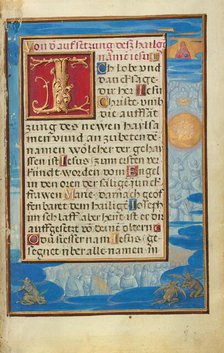 Von d' aufsetzung deß heilig
name iesu
Ich lobe vnd
danck sage
dir her Jesu
Christe vmb
die auffsat
zung des newen hailsa
men vnd an zu beten dē
namen völcher der gehai
ssen ist Jesus zum ersten er
kindt worden vom Engel
in den oren der sälige junck
frawen Marie darnach geof
fenbart dem hailige Joseph
im schlaff aber heut ist er dir
auffgesetzt von deine oltern
O du süesser nam Jesus ge
segnet vber alle namen in